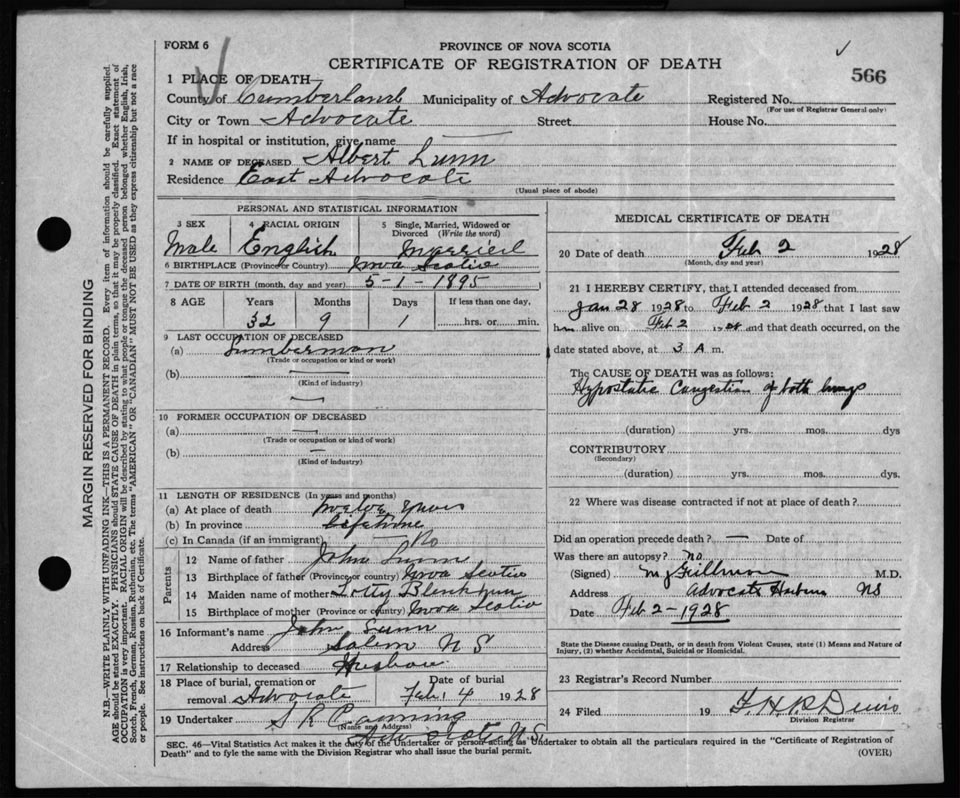 FORM 6
PROVINCE OF NOVA SCOTIA
CERTIFICATE OF REGISTRATION OF DEATH
566
1 PLACE OF DEATH
County of Cumberland Municipality of Advocate Registered No.
(For use of Registrar General only)
City or Town Advocate Street House No.
If in hospital or institution, give name
2 NAME OF DECEASED Albert Lunn
Residence East Advocate
(Usual place of abode)
PERSONAL AND STATISTICAL INFORMATION
3 SEX 4 RACIAL ORIGIN 5 Single, Married, Widowed or
Divorced (Write the word)
Male English Married
6 BIRTHPLACE (Province or Country) Nova Scotia
7 DATE OF BIRTH (month, day and year) 5-1-1895
8 AGE Years Months Days If less than one day,
32 9 1 hrs. or min.
9 LAST OCCUPATION OF DECEASED
(a) Lumberman
(Trade or occupation or kind or work)
(b)
(Kind of industry)
10 FORMER OCCUPATION OF DECEASED
(a)
(Trade or occupation or kind of work)
(b)
(Kind of industry)
11 LENGTH OF RESIDENCE (In years and months)
(a) At place of death Twelve Years
(b) In province Lifetime
(c) In Canada (if an immigrant) No
Parents
12 Name of father John Lunn
13 Birthplace of father (Province or country) Nova Scotia
14 Maiden name of mother Lotty
15 Birthplace of mother (Province or country) Nova Scotia
16 Informant's name John Lunn
Address Salem N S
17 Relationship to deceased
18 Place of burial, cremation or Date of burial
removal Advocate Feb. 4 1928
19 Undertaker S R Canning
(Name and Address)
N.S.
MEDICAL CERTIFICATE OF DEATH
20 Date of death Feb 2 1928
(Month, day and year)
21 I HEREBY CERTIFY, that I attended deceased from
Jan 28 1928 to Feb 2 1928 that I last saw
him alive on Feb 2 1928 and that death occurred, on the
date stated above, at 3 A m.
The CAUSE OF DEATH was as follows:
Hypostatic Congestion of both lungs
(duration) yrs. mos. dys
CONTRIBUTORY
(Secondary)
(duration) yrs. mos. dys.
22 Where was disease contracted if not at place of death?
Did an operation precede death? — Date of
Was there an autopsy? no
(Signed) M.D.
Address Advocate Harbour NS
Date Feb 2-1928
State the Disease causing Death, or in death from Violent Causes, state (1) Means and Nature of
Injury, (2) whether Accidental, Suicidal or Homicidal.
23 Registrar's Record Number
24 Filed 19
Division Registrar
SEC. 46—Vital Statistics Act makes it the duty of the Undertaker or person acting as Undertaker to obtain all the particulars required in the "Certificate of Registration of
Death" and to fyle the same with the Division Registrar who shall issue the burial permit.
(OVER)
MARGIN RESERVED FOR BINDING
N.B.—WRITE PLAINLY WITH UNFADING INK—THIS IS A PERMANENT RECORD. Every item of information should be carefully supplied.
AGE should be stated EXACTLY. PHYSICIANS should STATE CAUSE OF DEATH in plain terms, so that it may be properly classified. Exact statement of
OCCUPATION is very important. RACIAL ORIGIN will be described by stating to what people or tongue the deceased person belonged whether English, Irish,
Scotch, French, German, Russian, Ruthenian, etc. The terms "AMERICAN" OR "CANADIAN" MUST NOT BE USED as they express citizenship but not a race
or people. See instructions on back of Certificate.